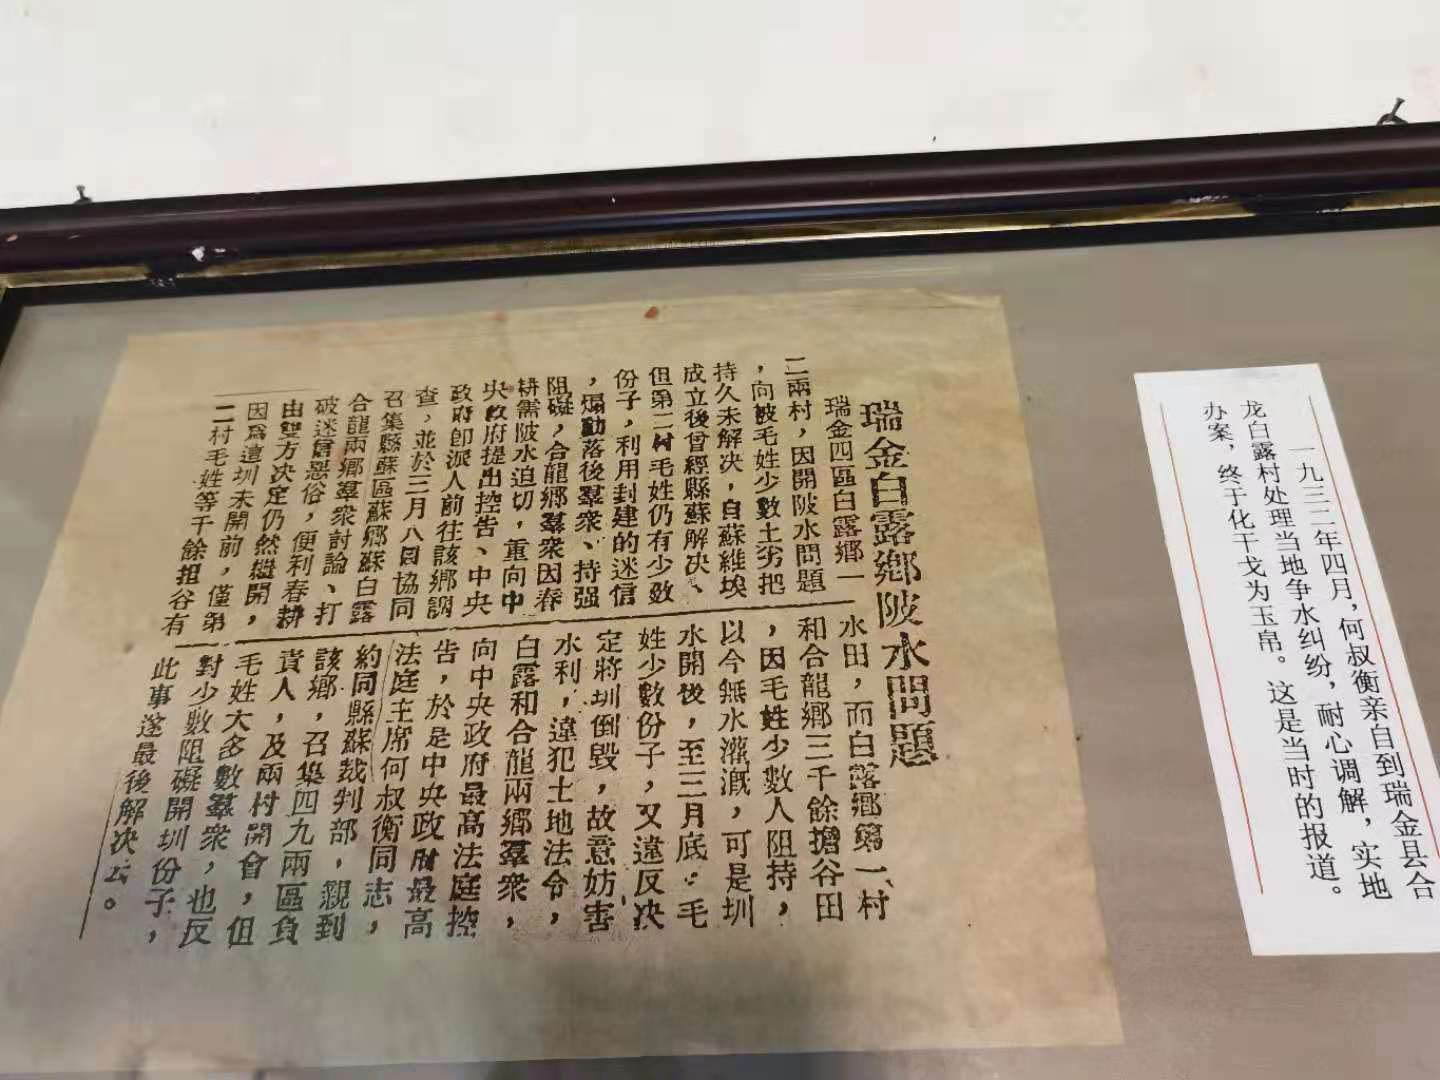 瑞金白露鄉陂水問題
瑞金四區白露鄉一
二兩村，因開陂水問題
，向被毛姓少數土劣把
持久未解决，自蘇維埃
成立後曾經縣蘇解决、
但第二村毛姓仍有少数
份子，利用封建的迷信
，煽動落後羣衆、持强
阻礙，合龍鄉羣衆因春
耕需陂水迫切，重向中
央政府提出控告、中央
政府卽派人前往該鄉調
查，並於三月八日協同
召集縣蘇區蘇鄉蘇白露
合龍兩鄉羣衆討論、打
破迷信恶俗，便利春耕
由雙方决定仍然繼開，
因爲這圳未開前，僅第
二村毛姓等千餘担谷有
水田，而白露鄉第一村
和合龍鄉三千餘擔谷田
，因毛姓少數人阻持，
以今無水灌溉，可是圳
水開後，至三月底：毛
姓少數份子，又違反决
定將圳倒毀，故意妨害
水利，違犯土地法令，
白露和合龍兩鄉羣衆，
向中央政府最高法庭控
告，於是中央政府最高
法庭主席何叔衡同志，
約同縣蘇裁判部，親到
該鄉，召集四九兩區負
責人，及兩村開會，但
毛姓大多數羣衆，也反
對少數阻礙開圳份子，
此事遂最後解决云。
一九三二年四月，何叔衡亲自到瑞金县合
龙白露村处理当地争水纠纷，耐心调解，实地
办案，终于化干戈为玉帛。这是当时的报道。